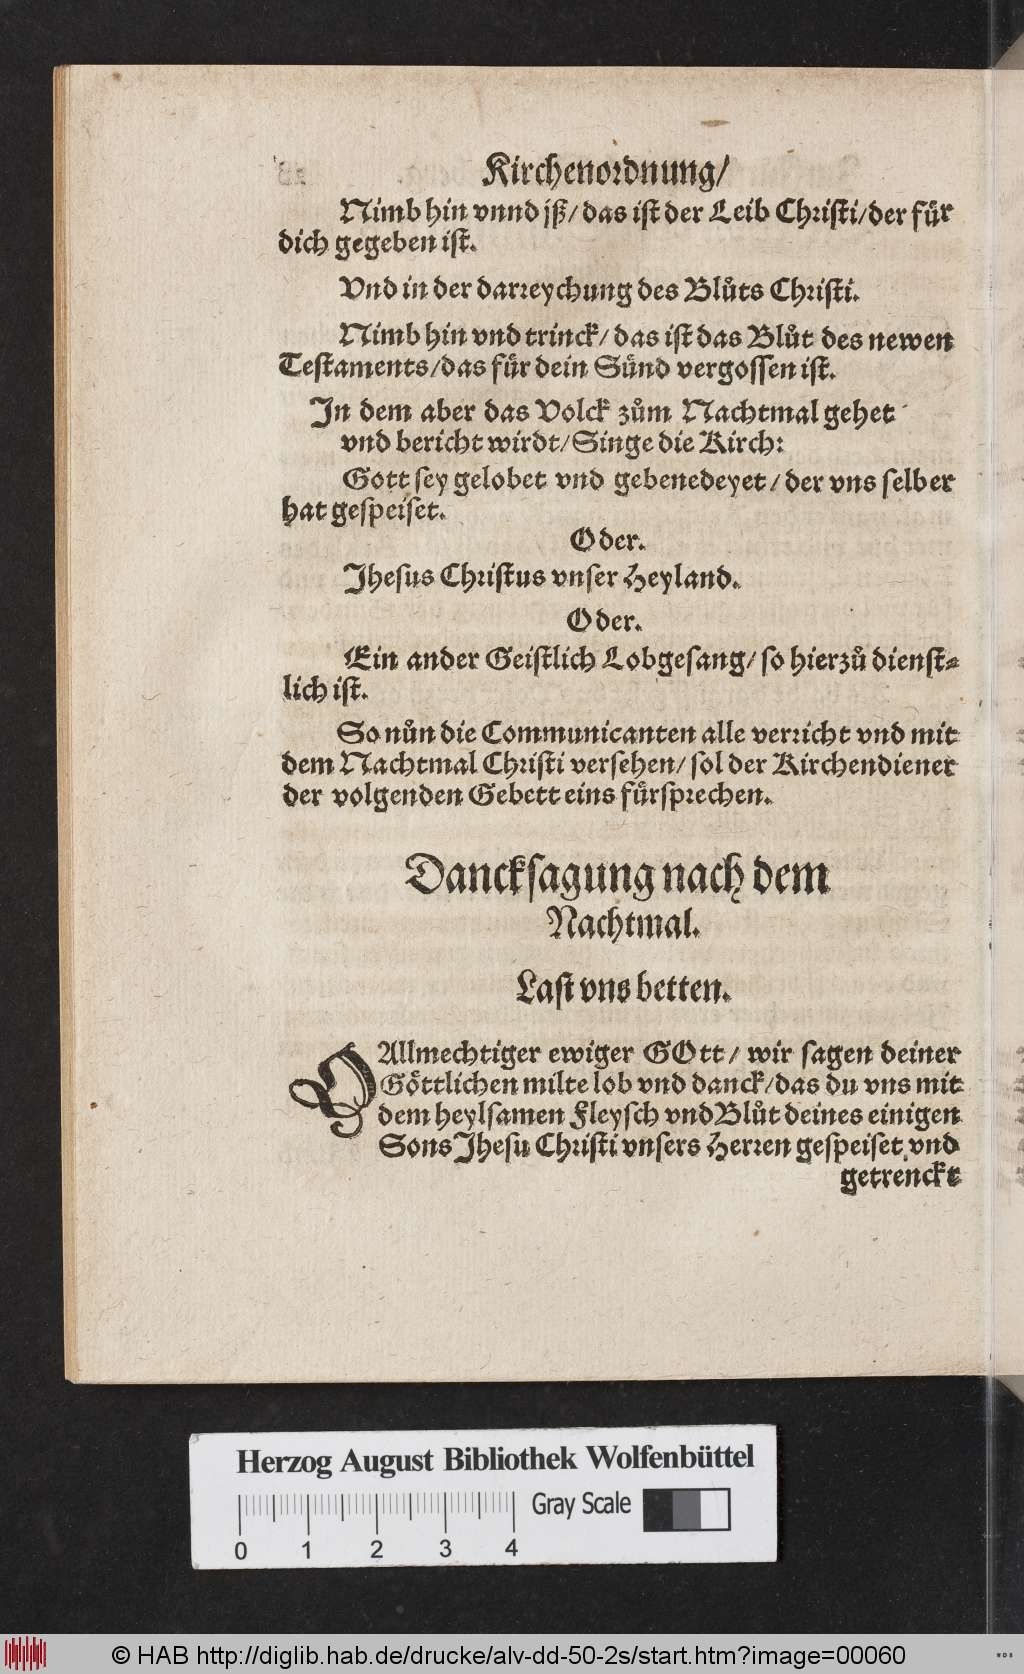 Kirchenordnung/
Nimb hin vnnd jß/ das ist der Leib Christi/ der für
dich gegeben ist.
Vnd in der darreychung des Blůts Christi.
Nimb hin vnd trinck/ das ist das Blůt des newen
Testaments/ das für dein Sünd vergossen ist.
In dem aber das Volck zům Nachtmal gehet
vnd bericht wirdt/ Singe die Kirch:
Gott sey gelobet vnd gebenedeyet/ der vns selber
hat gespeiset.
Oder.
Jhesus Christus vnser Heyland.
Oder.
Ein ander Geistlich Lobgesang/ so hierzů dienst⸗
lich ist.
So nůn die Communicanten alle verricht vnd mit
dem Nachtmal Christi versehen/ sol der Kirchendiener
der volgenden Gebett eins fürsprechen.
Dancksagung nach dem
Nachtmal.
Last vns betten.
O Allmechtiger ewiger GOtt/ wir sagen deiner
Göttlichen milte lob vnd danck/ das du vns mit
dem heylsamen Fleysch vnd Blůt deines einigen
Sons Jhesu Christi vnsers Herren gespeiset vnd
getrenckt
Herzog August Bibliothek Wolfenbüttel
Gray Scale
0 1 2 3 4
© HAB http://diglib.hab.de/drucke/alv-dd-50-2s/start.htm?image=00060